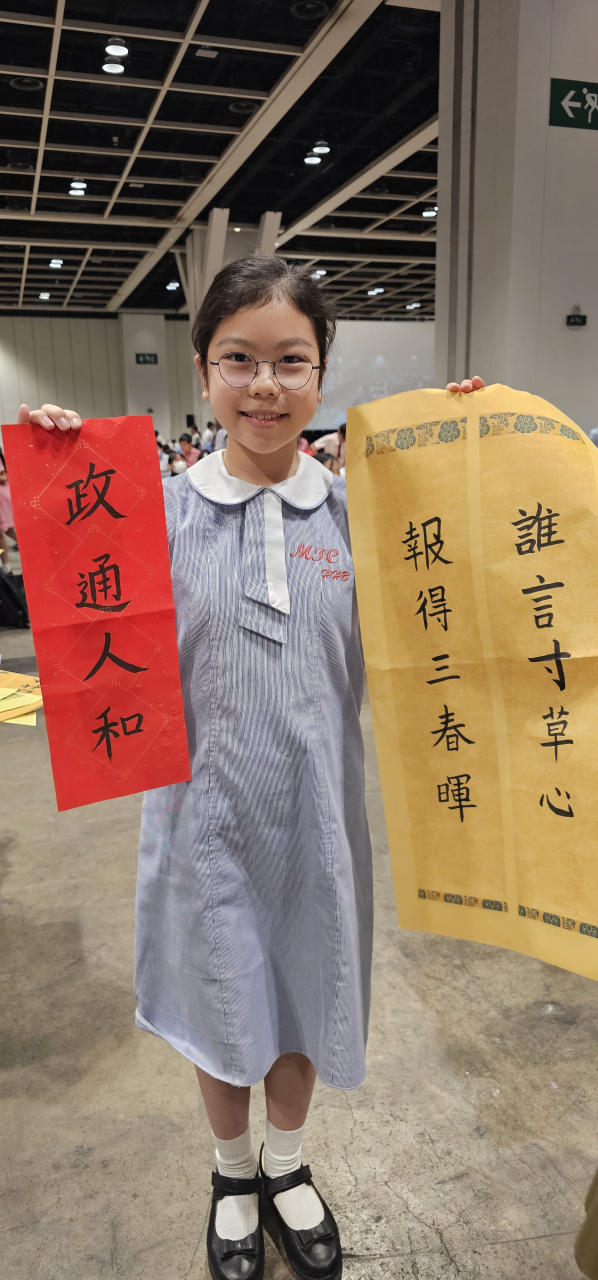 政通人和
誰言寸草心
報得三春暉
MTC
HHB